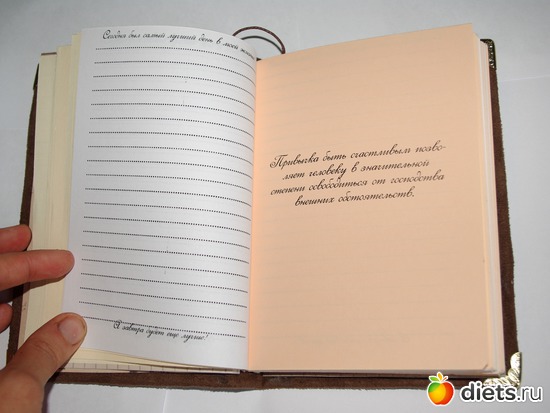 Сегодня был самый лучший день в моей жизни
А завтра будет еще лучше!
Привычка быть счастливым позво-
ляет человеку в значительной
степени освободиться от господства
внешних обстоятельств.
diets.ru